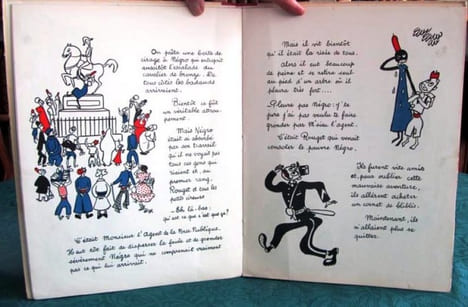 On prêta une boîte de
cirage à Négro qui entreprit
aussitôt l'escalade du
cavalier de bronze. De
tous côtés les badauds
arrivaient.
Bientôt ce fut
un véritable attrou-
pement.
Mais Négro
était si absorbé
par son travail
qu'il ne voyait pas
tous ces gens qui
riaient et, au
premier rang,
Rouget et tous les
petits cireurs
_ Eh là-bas:
qu'est-ce que c'est que ça?
C'était Monsieur l'Agent de la Paix Publique.
Il eut vite fait de disperser la foule et de gronder
sévèrement Négro qui ne comprenait vraiment
pas ce qui lui arrivait.
Mais il vit bientôt
qu'il était la risée de tous.
alors il eut beaucoup
de peine et se retira seul
au pied d'un arbre où il
pleura très fort....
_Pleure pas Négro; je te
jure j'ai pas voulu te faire
gronder par M'sieu l'agent.
C'était Rouget qui venait
consoler le pauvre Négro.
Ils furent vite amis
et, pour oublier cette
mauvaise aventure,
ils allèrent acheter
un cornet de bliblis.
Maintenant, ils
n'allaient plus se
quitter.